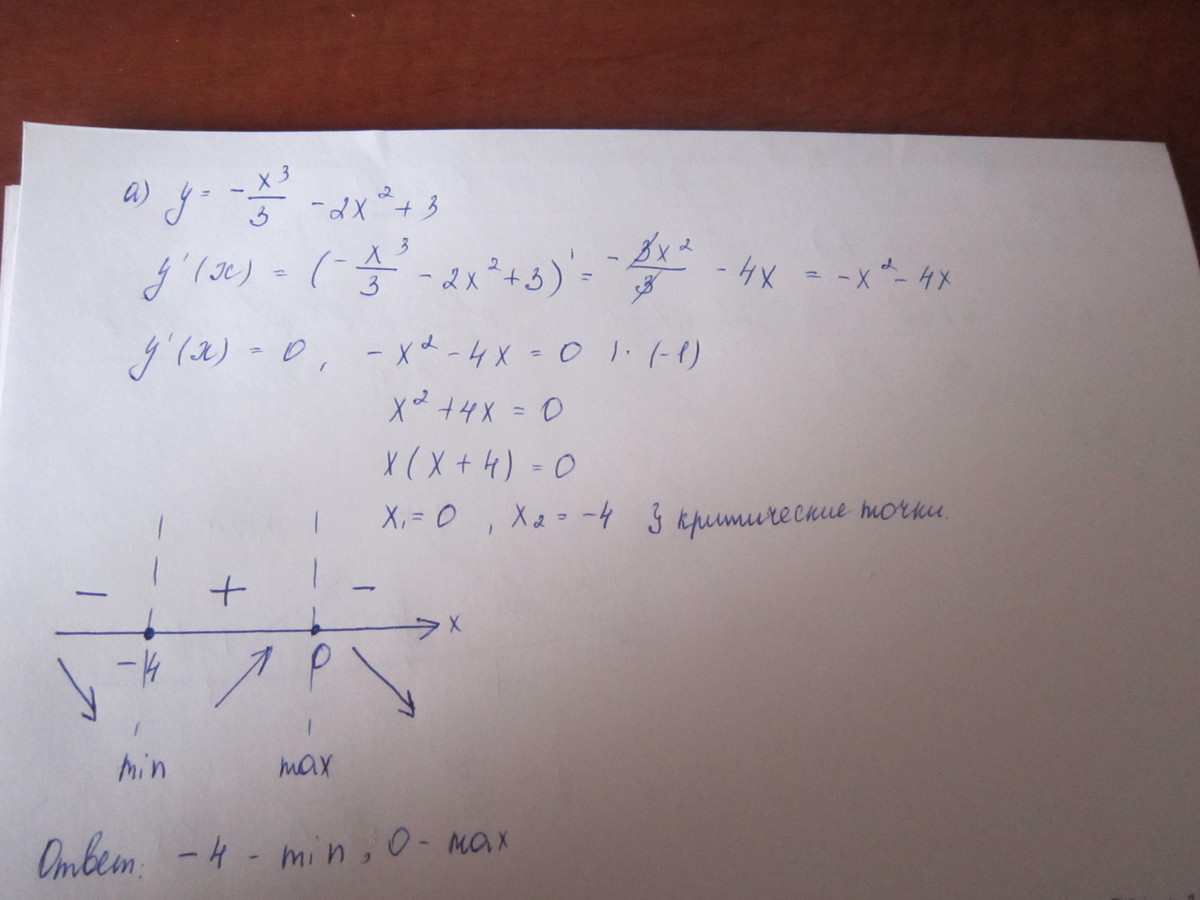 а) y = -x³/3 - 2x² + 3
y'(x) = (-x³/3 - 2x² + 3)' = -3x²/3 - 4x = -x² - 4x
y'(x) = 0, -x² - 4x = 0 |·(-1)
x² + 4x = 0
x(x + 4) = 0
x₁ = 0, x₂ = -4 } критические точки.
- + -
-4 0 x
min max
Ответ: -4 - min, 0 - max